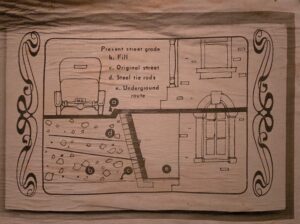 Present street grade
b. Fill
c. Original street
d. Steel tie rods
e. Underground
route